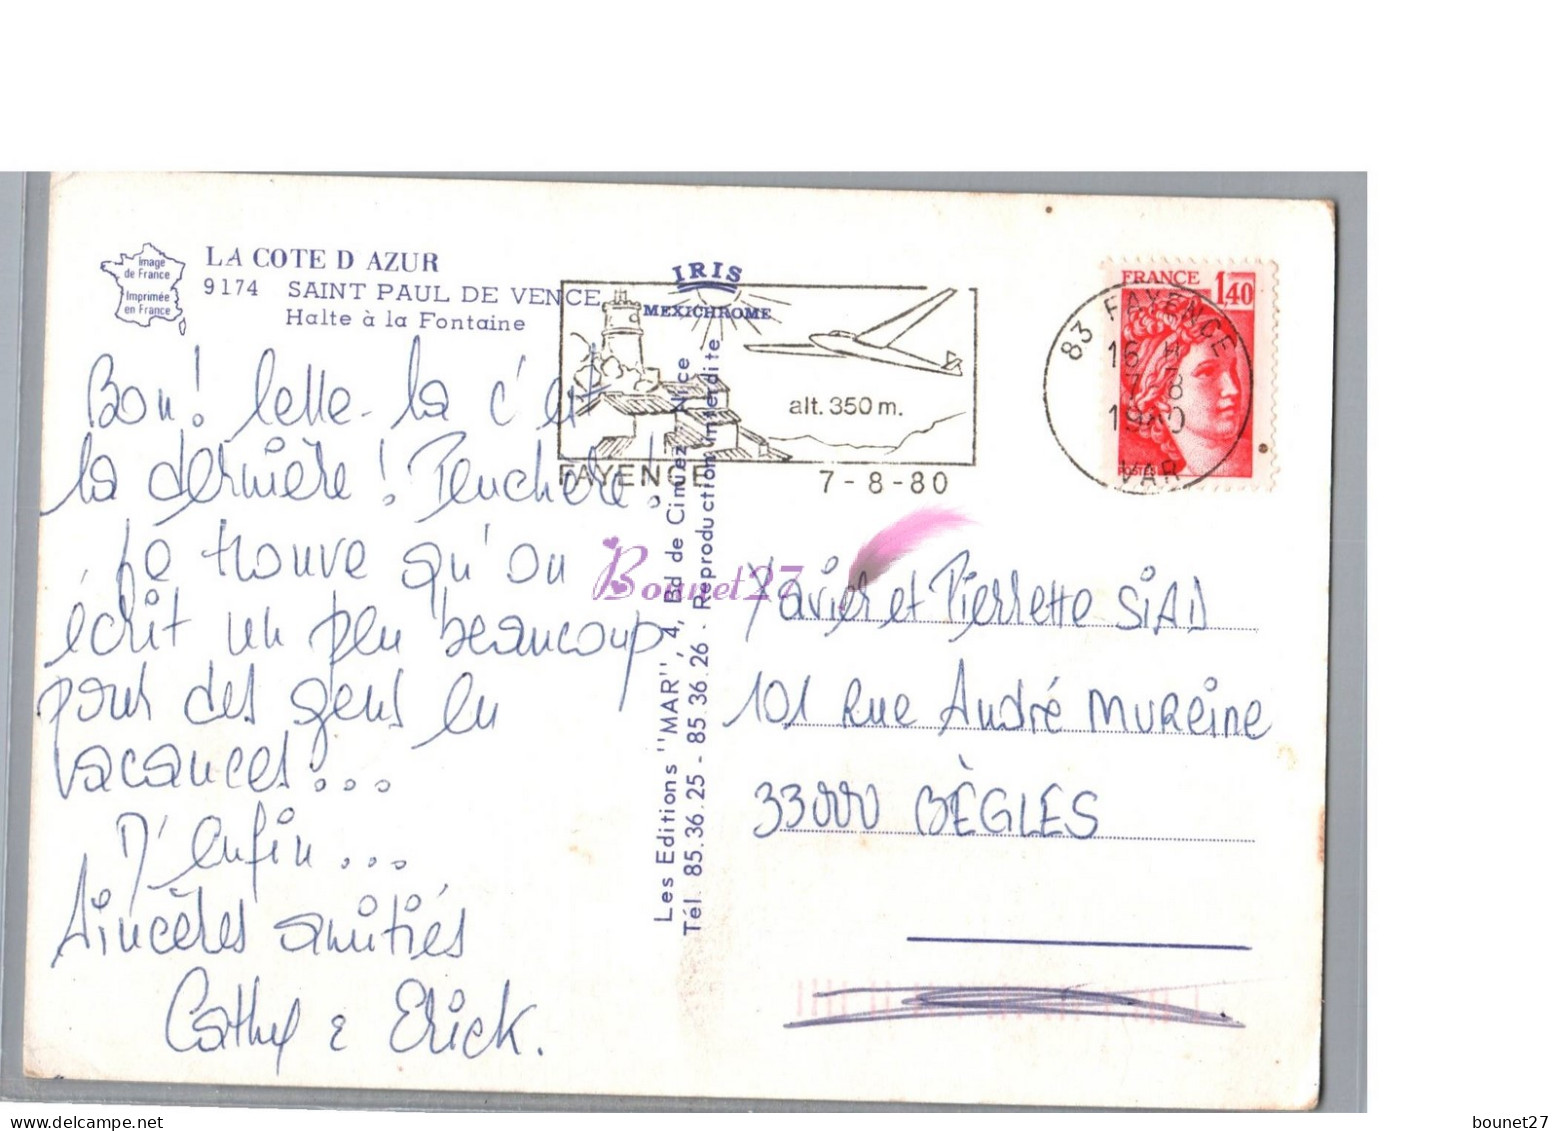 Image
de France
Imprimée
en France
LA COTE D AZUR
9174 SAINT PAUL DE VENCE
Halte à la Fontaine
IRIS
MEXICHROME
alt. 350 m.
FAYENCE 7-8-80
83 FAYENCE
16 H
7-8
1980
VAR
FRANCE 1,40
POSTES
Bon! Celle-là c'est
la dernière! Peuchère!
Je trouve qu'on
écrit un peu beaucoup
pour des gens en
vacances...
M'enfin...
Sincères amitiés
Cathy & Erick.
Les Editions "MAR", 4, Bd de Cimiez Nice
Tél. 85.36.25 - 85.36.26 - Reproduction interdite
Bounet27
Xavier et Pierrette SIAD
101 Rue André MUREINE
33000 BÈGLES
bounet27